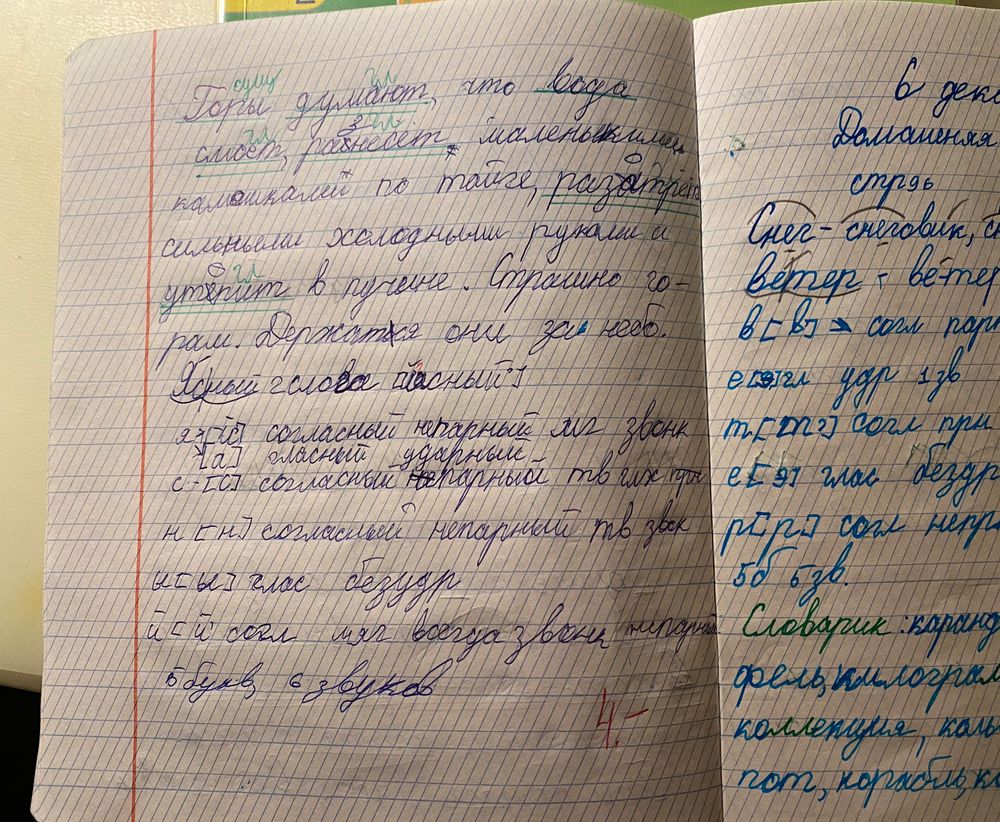 сущ гл
Горы думают, что вода
гл 3 гл
смост, разнесет маленькими
камешками по тайге, разатрёт
сильными холодными руками и
гл
утопит в пучине. Страшно го-
рам. Держаться они за небо.
Ясный 2 слога [йасный']
я-[й] согласный непарный мяг звонк
[а] гласный ударный
с-[с] согласный парный тв глух
н [н] согласный непарный тв звок
ы[ы] глас безудр
й [й' согл мяг всегда звонк непарный
5 букв, 6 звуков
4-
6 дека
Домашняя
стрдь
Снег- снеговик, сн
ветер - ве-тер
в[в] согл пар
е[э]гл удр 1зв
т[т] согл при
е[э] глас бездр
р[р] согл непр
5б 5зв.
Словарик: каранд
фель, килограм
коллекция, кол
пот, корабль, к